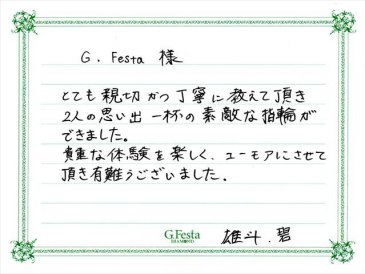 G. Festa 様
とても親切かつ丁寧に教えて頂き
2人の思い出一杯の素敵な指輪が
できました。
貴重な体験を楽しく、ユーモアにさせて
頂き有難うございました。
G.Festa
DIAMOND
雄斗.碧